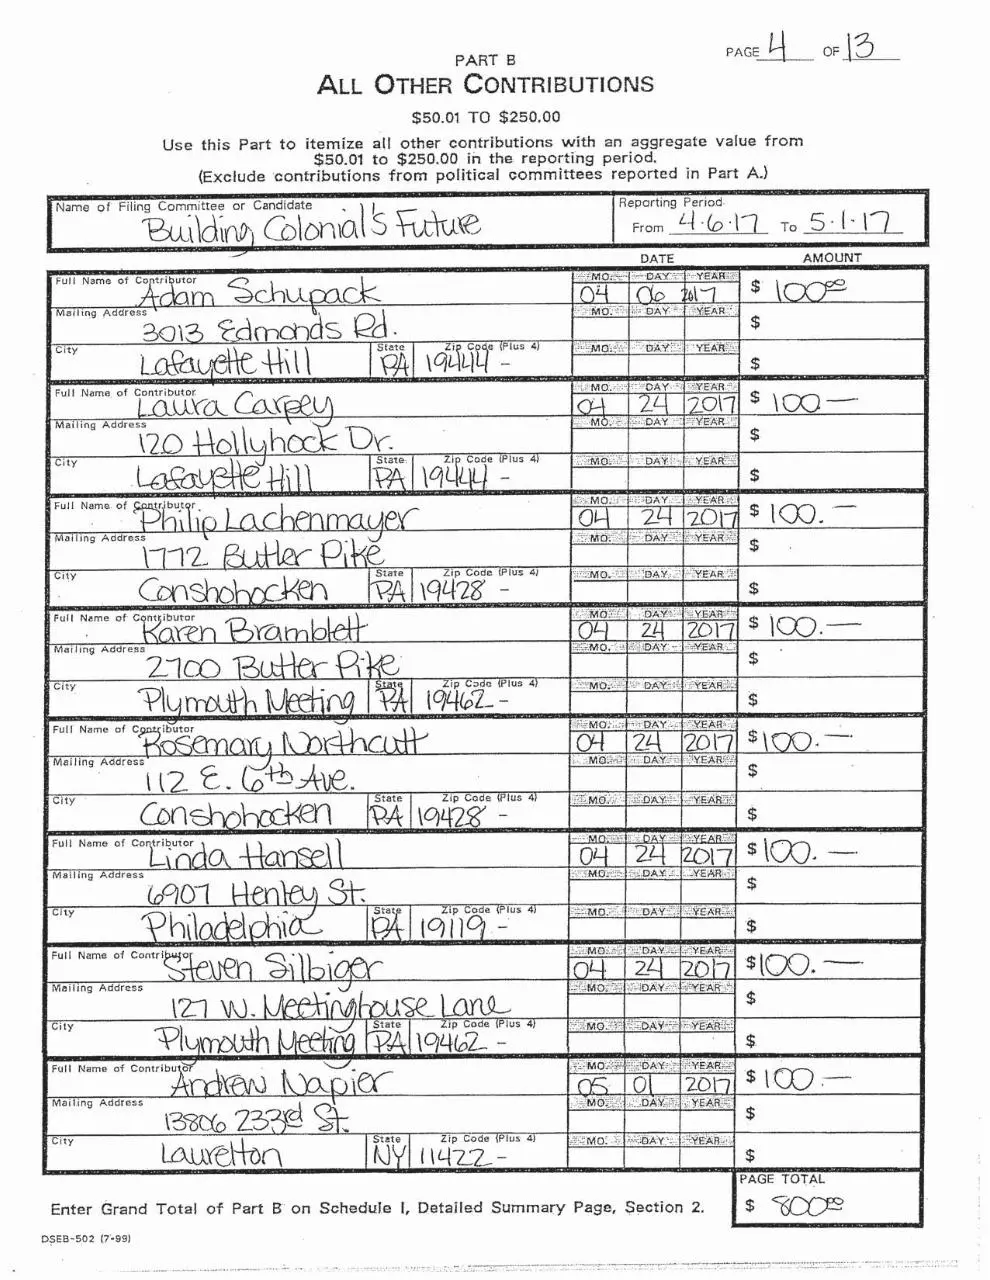 PAGE 4 OF 13
PART B
ALL OTHER CONTRIBUTIONS
$50.01 TO $250.00
Use this Part to itemize all other contributions with an aggregate value from
$50.01 to $250.00 in the reporting period.
(Exclude contributions from political committees reported in Part A.)
Name of Filing Committee or Candidate
Building Colonial's Future
Reporting Period
From 4.6.17 To 5.1.17
DATE AMOUNT
Full Name of Contributor MO. DAY YEAR
Adam Schupack 04 06 2017 $ 100.00
Mailing Address MO. DAY YEAR
3013 Edmonds Rd. $
City State Zip Code (Plus 4) MO. DAY YEAR
Lafayette Hill PA 19444 - $
Full Name of Contributor MO. DAY YEAR
Laura Carpey 04 24 2017 $ 100 —
Mailing Address MO. DAY YEAR
120 Hollyhock Dr. $
City State Zip Code (Plus 4) MO. DAY YEAR
Lafayette Hill PA 19444 - $
Full Name of Contributor MO. DAY YEAR
Philip Lachenmayer 04 24 2017 $ 100. —
Mailing Address MO. DAY YEAR
1772 Butler Pike $
City State Zip Code (Plus 4) MO. DAY YEAR
Conshohocken PA 19428 - $
Full Name of Contributor MO. DAY YEAR
Karen Bramblett 04 24 2017 $ 100. —
Mailing Address MO. DAY YEAR
2700 Butler Pike $
City State Zip Code (Plus 4) MO. DAY YEAR
Plymouth Meeting PA 19462 - $
Full Name of Contributor MO. DAY YEAR
Rosemary Northcutt 04 24 2017 $ 100. —
Mailing Address MO. DAY YEAR
112 E. 6th Ave. $
City State Zip Code (Plus 4) MO. DAY YEAR
Conshohocken PA 19428 - $
Full Name of Contributor MO. DAY YEAR
Linda Hansell 04 24 2017 $ 100. —
Mailing Address MO. DAY YEAR
6907 Henley St. $
City State Zip Code (Plus 4) MO. DAY YEAR
Philadelphia PA 19119 - $
Full Name of Contributor MO. DAY YEAR
Steven Silbiger 04 24 2017 $ 100. —
Mailing Address MO. DAY YEAR
127 W. Meetinghouse Lane $
City State Zip Code (Plus 4) MO. DAY YEAR
Plymouth Meeting PA 19462 - $
Full Name of Contributor MO. DAY YEAR
Andrew Napier 05 01 2017 $ 100. —
Mailing Address MO. DAY YEAR
13806 233rd St. $
City State Zip Code (Plus 4) MO. DAY YEAR
Laurelton NY 11422 - $
PAGE TOTAL
Enter Grand Total of Part B on Schedule I, Detailed Summary Page, Section 2. $ 800.00
DSEB-502 (7-99)